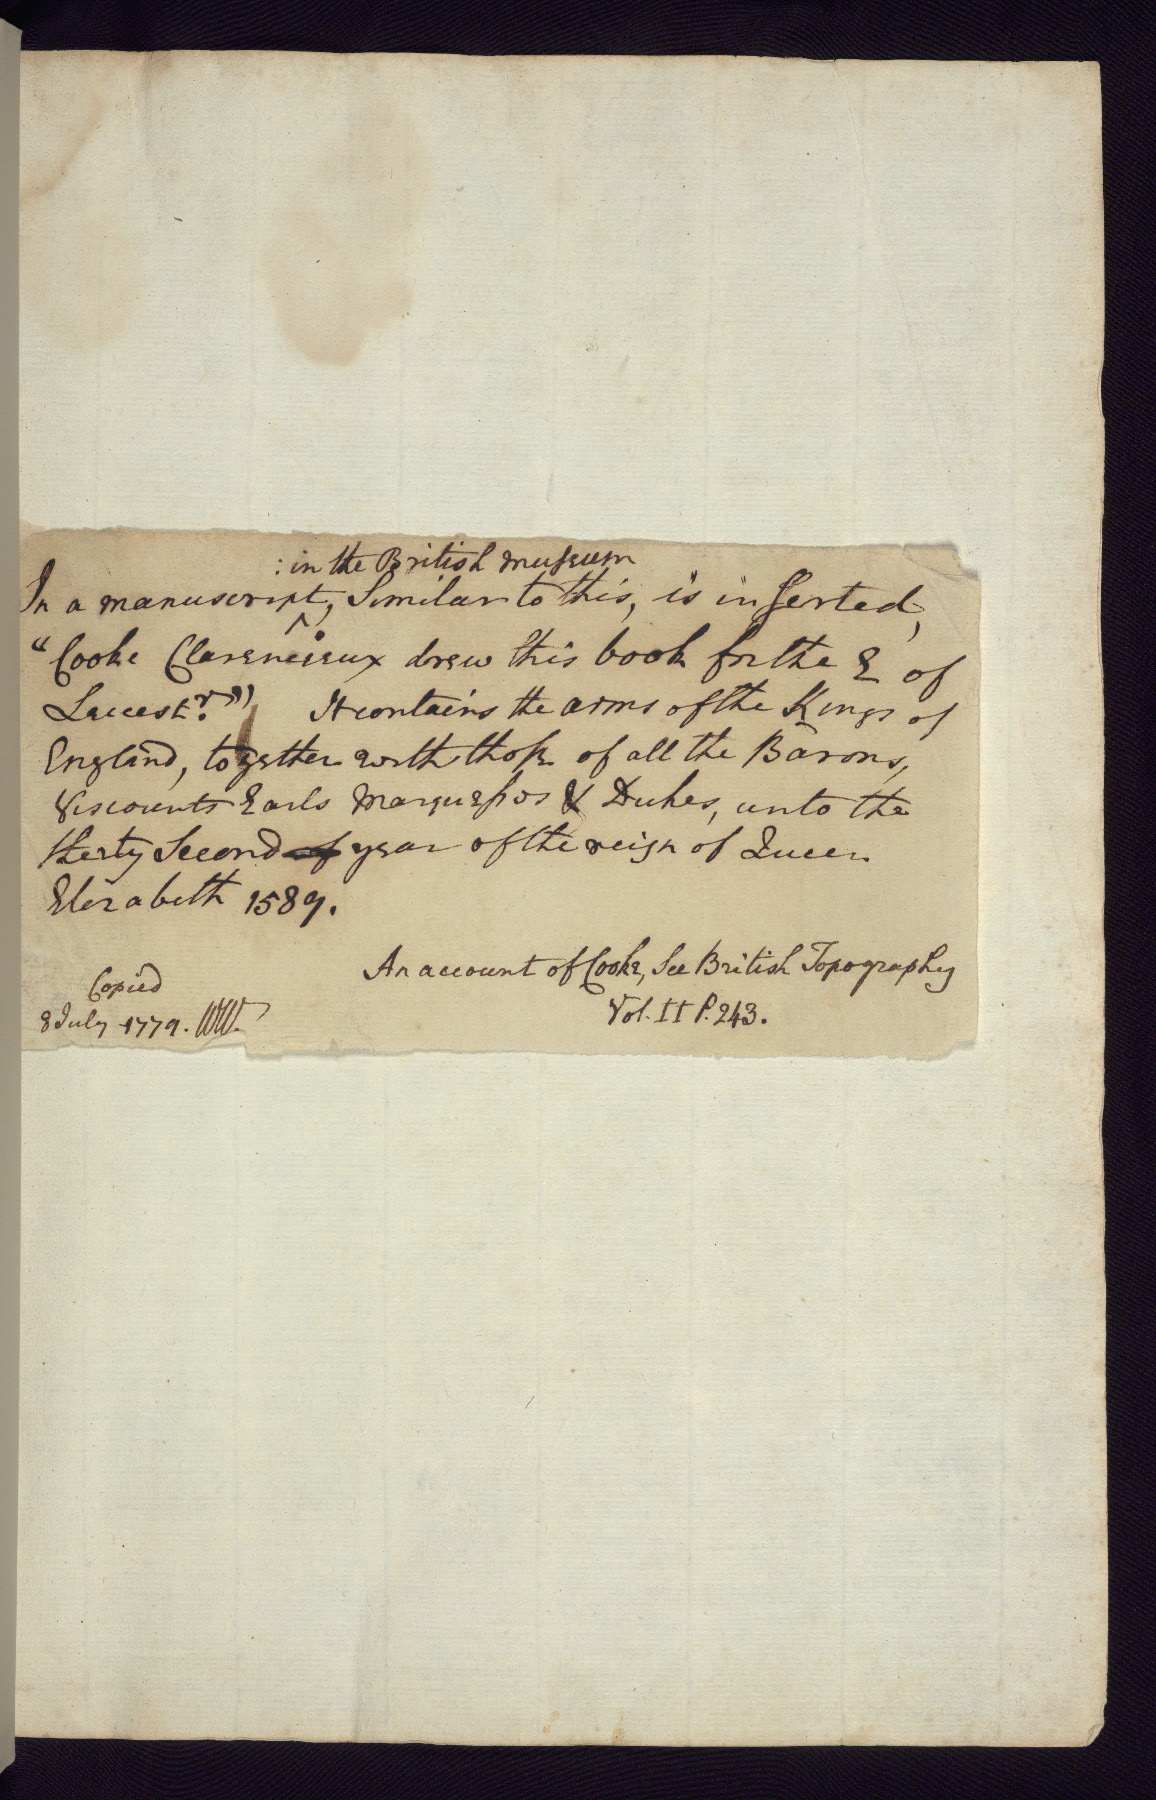 : in the British museum
In a manuscript, Similar to this, is inserted,
"Cooke Clarencieux drew this book for the E of
Leicestr." It contains the arms of the Kings of
England, together with those of all the Barons,
Viscounts Earls Marquesses & Dukes, unto the
therty Second of year of the reign of Queen
Elizabeth 1589.
An account of Cooke, See British Topography
Vol. II P. 243.
Copied
8 July 1779. WW.